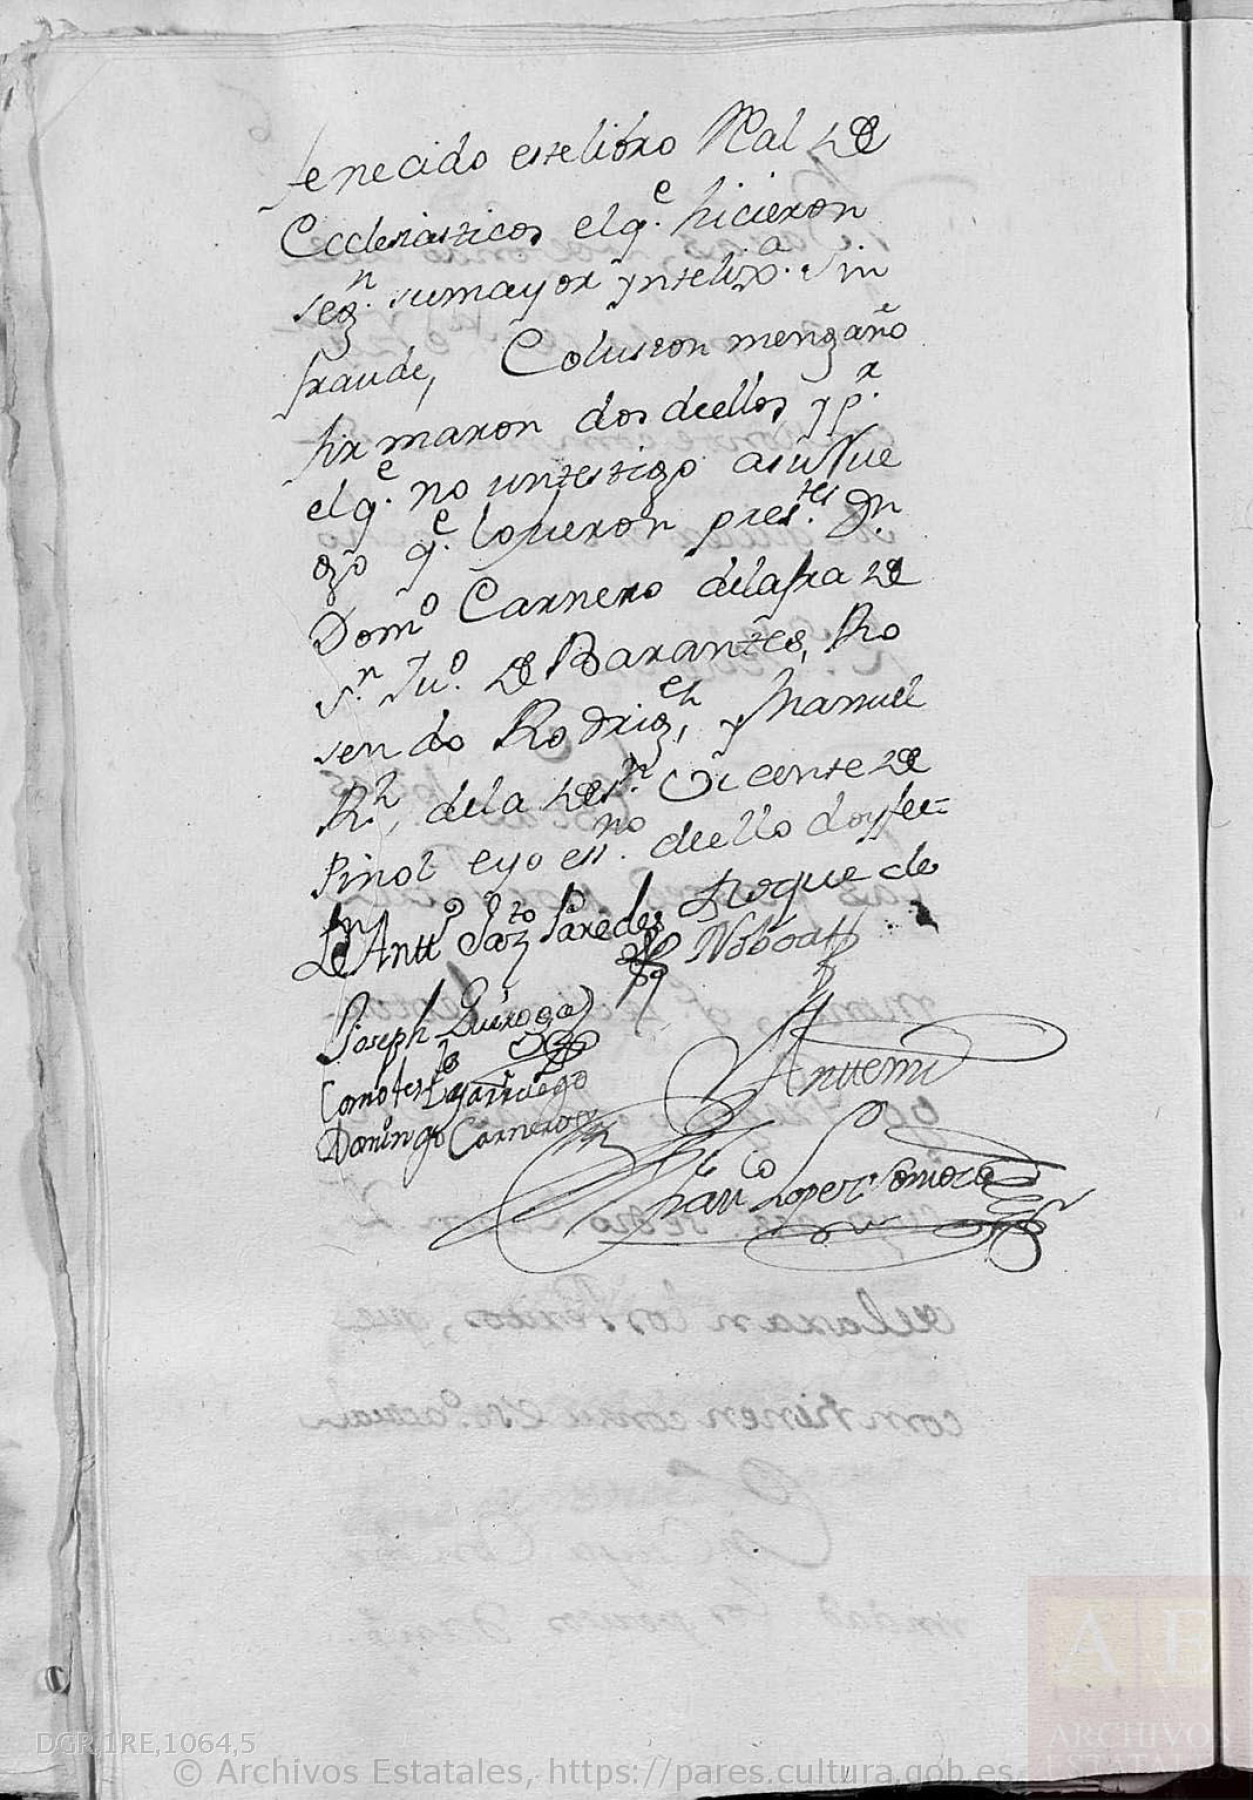 fenecido este libro Real de
Ecclesiasticos el q.e hicieron
seg.n su mayor yntelix.a sin
fraude, Colusion menganõ
firmaron dos de ellos y p.r
el q.e no un testigo a su Rue
go q.e lo fueron pres.tes Dn
Dom.o Carnero de la fra de
S.n Ju.o de Barantes, Ro
sendo Rodrig.ez, y Manuel
R.z, de la de S.n Vicente de
Pinol e yo ess.no de ello doy fee=
Ldo Antt.o Paredes Roque de
Noboa
Joseph Quiroga
Como tes.tgo y a rruego
Domingo Carnero
Anttemi
Fran.co Lopez Somoza
DGR,1RE,1064,5
© Archivos Estatales, https://pares.cultura.gob.es
AE
ARCHIVOS
ESTATALES